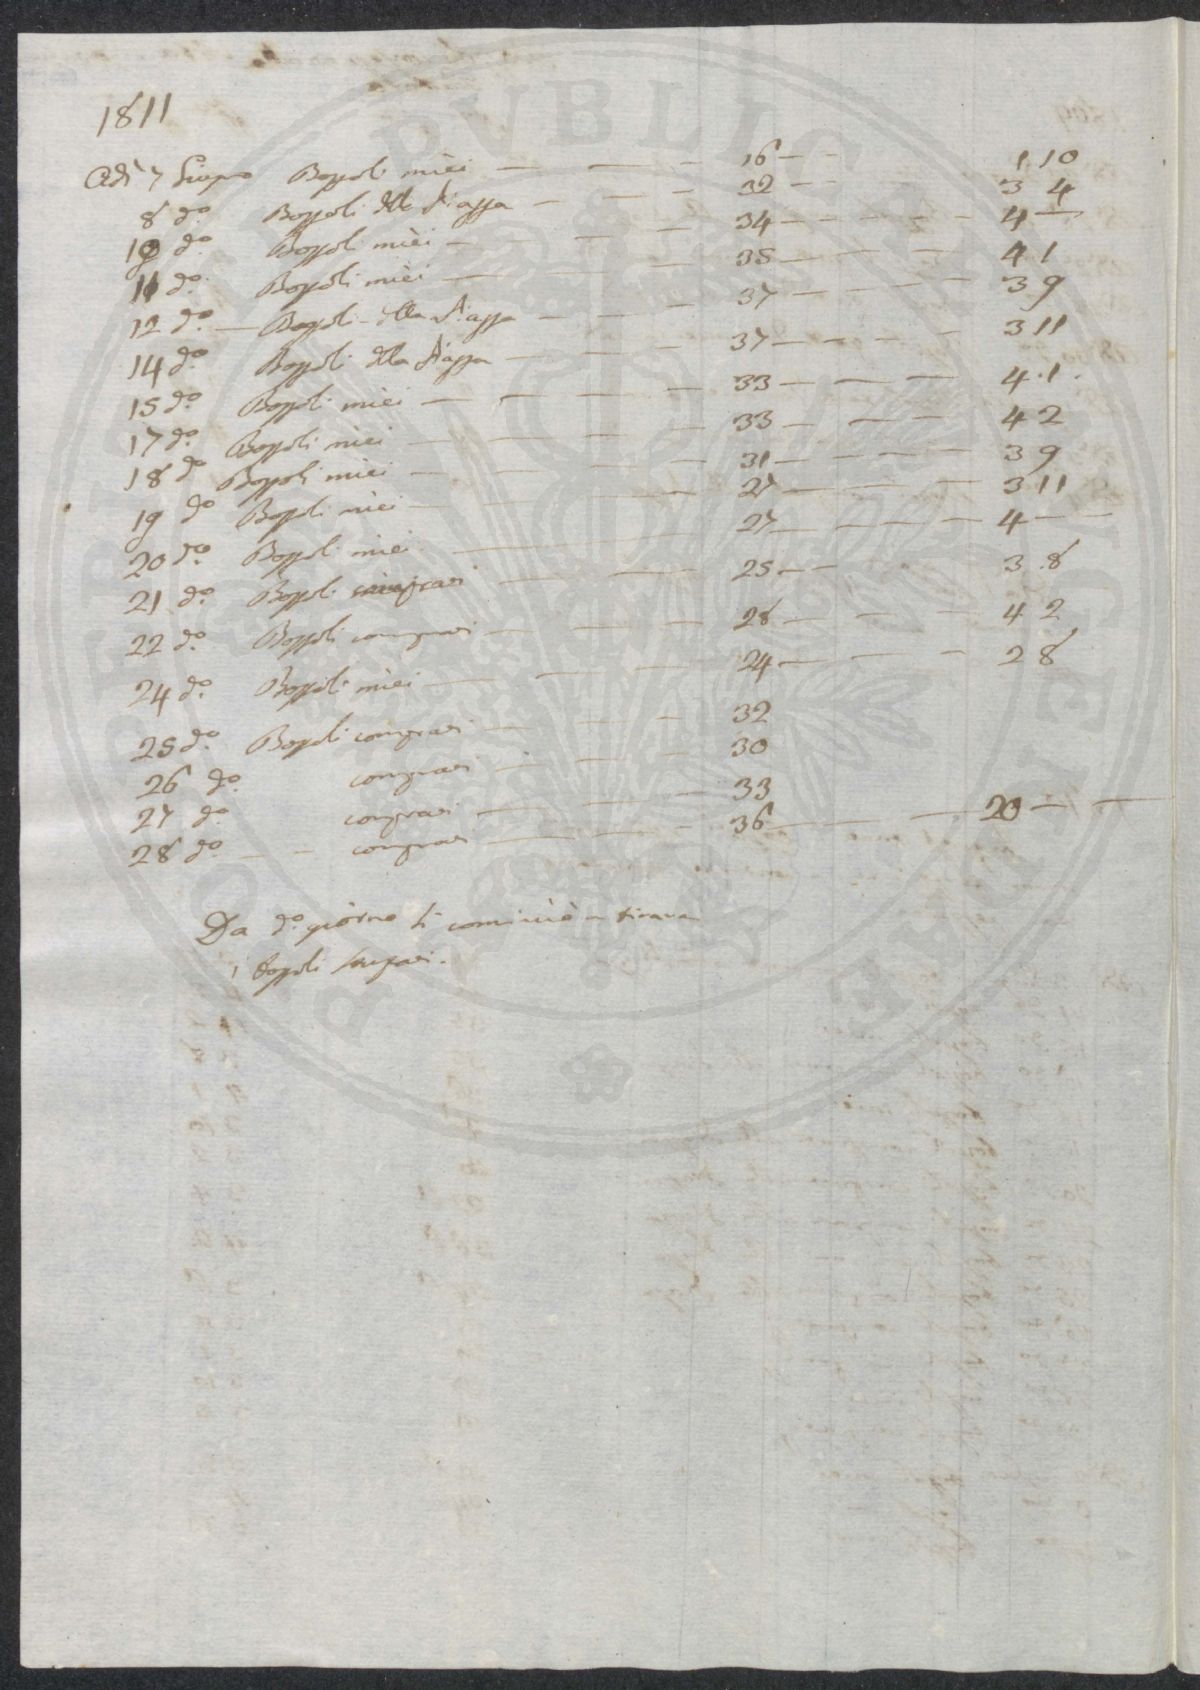 1811
Adì 7 Giugno Bozzoli miei — — — 16 — — 1 10
8 do. Bozzoli della Piazza — — — 32 — — 3 4
10 do. Bozzoli miei — — — 34 — — — — 4 —
11 do. Bozzoli miei — — — 35 — — — 4 1
12 do. — Bozzoli della Piazza — — — 37 — — — 3 9
14 do. Bozzoli della Piazza — — — 37 — — — 3 11
15 do. Bozzoli miei — — — — 33 — — — 4 . 1 .
17 do. Bozzoli miei — — — 33 — — — 4 2
18 do Bozzoli miei — — — 31 — — — 3 9
19 do Bozzoli miei — — — 27 — — — 3 11
20 do. Bozzoli miei — — — 27 — — — 4 —
21 do. Bozzoli comprati — — — 25 — — 3 . 8
22 do. Bozzoli comprati — — — 28 — — — 4 2
24 do. Bozzoli miei — — — 24 — — — 2 8
25 do. Bozzoli comprati — — — 32
26 do. comprati — — — 30
27 do. comprati — — — 33
28 do. — — comprati — — — 36 — — 20 — —
Da do. giorno si cominciò a tirare
i bozzoli
PVBLICA
PRO